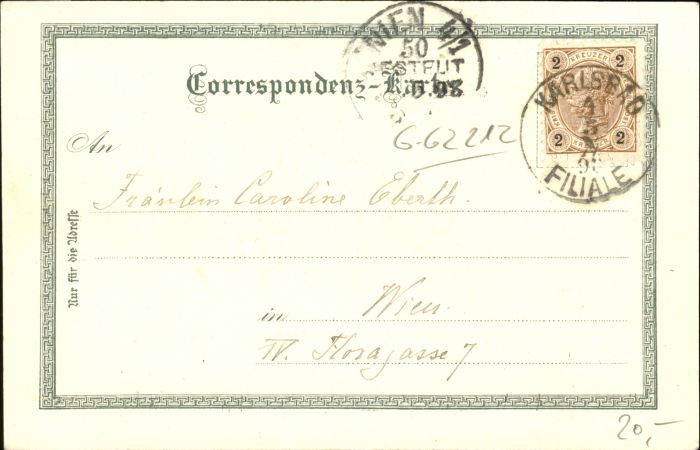 WIEN 4/1
50
Correspondenz-Karte
2 KREUZER 2
2 2
KARLSBAD
FILIALE
6-62212
An
Fräulein Caroline Eberth.
in Wien.
IV. Floragasse 7
Nur für die Adresse
20,-